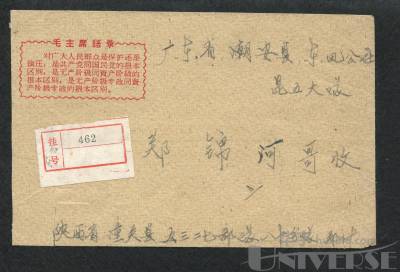 毛主席語录
对广大人民群众是保护还是
镇压，是共产党同国民党的根本
区别，是无产阶级同資产阶级的
根本区别，是无产阶级专政同資
产阶级专政的根本区别。
广东省 潮安县 东凤公社
昆五大队
挂号
462
郑锦河哥收
陕西省 重夹县 五三二七部
UNIVERSE